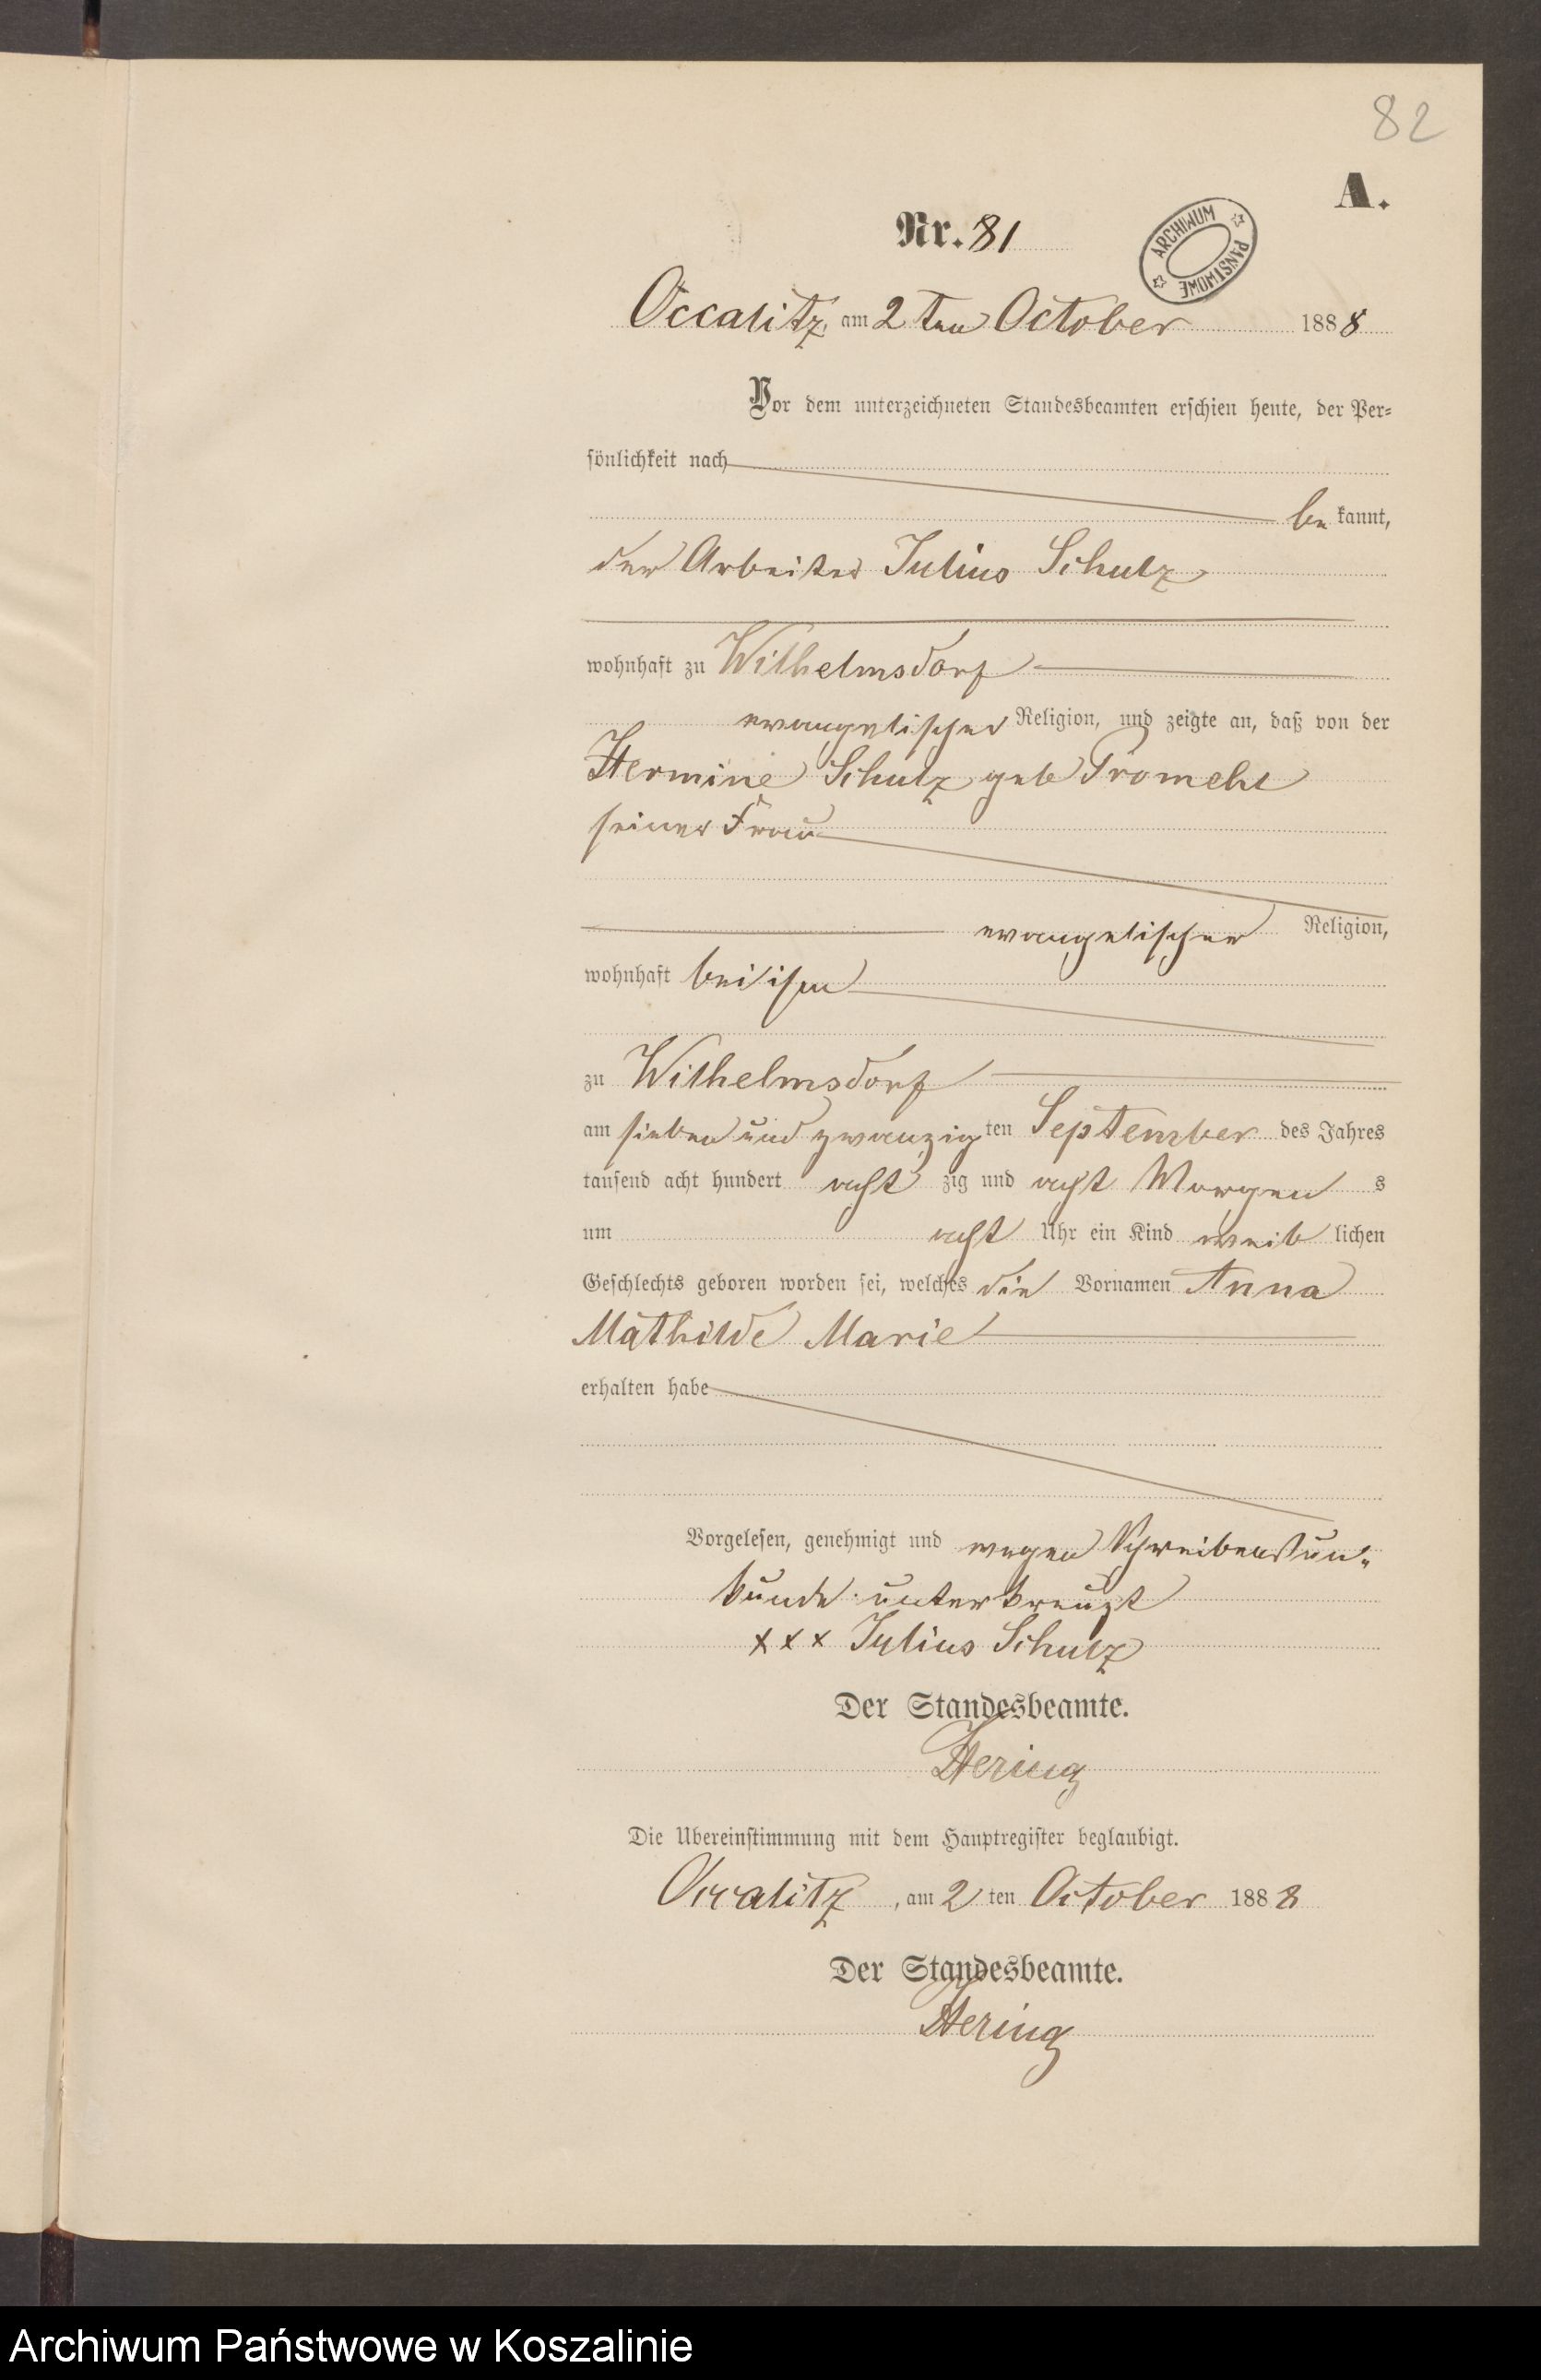 82
A.
Nr. 81
ARCHIWUM PAŃSTWOWE
Occalitz, am 2 ten October 1888
Vor dem unterzeichneten Standesbeamten erschien heute, der Per-
sönlichkeit nach
be kannt,
der Arbeiter Julius Schulz
wohnhaft zu Wilhelmsdorf
evangelischer Religion, und zeigte an, daß von der
Hermine Schulz geb
seiner Frau
evangelischer Religion,
wohnhaft bei ihm
zu Wilhelmsdorf
am sieben und zwanzig ten September des Jahres
tausend acht hundert acht zig und acht Morgen s
um acht Uhr ein Kind weib lichen
Geschlechts geboren worden sei, welches die Vornamen Anna
Mathilde Marie
erhalten habe
Vorgelesen, genehmigt und wegen Schreibensun-
kunde unterkreuzt
xxx Julius Schulz
Der Standesbeamte.
Hering
Die Übereinstimmung mit dem Hauptregister beglaubigt.
Occalitz, am 2 ten October 1888
Der Standesbeamte.
Hering
Archiwum Państwowe w Koszalinie